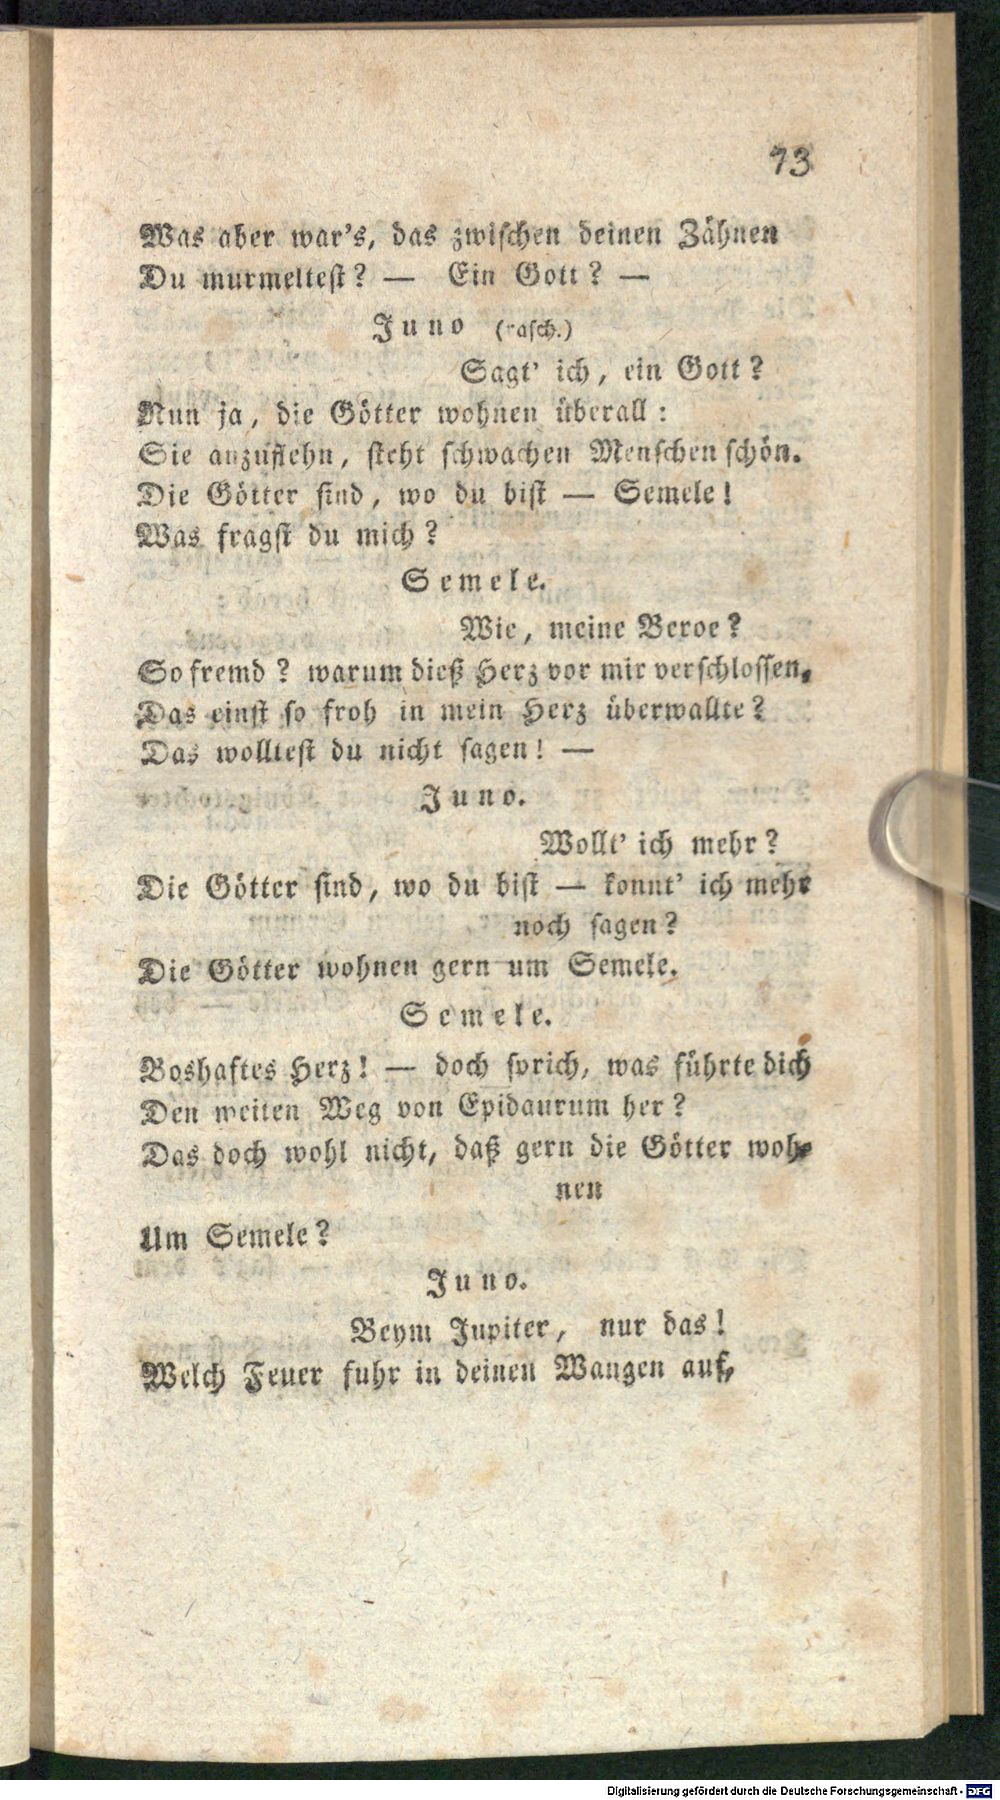 73
Was aber war's, das zwischen deinen Zähnen
Du murmeltest? — Ein Gott? —
Juno (rasch.)
Sagt' ich, ein Gott?
Nun ja, die Götter wohnen überall:
Sie anzuflehn, steht schwachen Menschen schön.
Die Götter sind, wo du bist — Semele!
Was fragst du mich?
Semele.
Wie, meine Beroe?
So fremd? warum dieß Herz vor mir verschlossen,
Das einst so froh in mein Herz überwallte?
Das wolltest du nicht sagen! —
Juno.
Wollt' ich mehr?
Die Götter sind, wo du bist — konnt' ich mehr
noch sagen?
Die Götter wohnen gern um Semele.
Semele.
Boshaftes Herz! — doch sprich, was führte dich
Den weiten Weg von Epidaurum her?
Das doch wohl nicht, daß gern die Götter woh-
nen
Um Semele?
Juno.
Beym Jupiter, nur das!
Welch Feuer fuhr in deinen Wangen auf,
Digitalisierung gefördert durch die Deutsche Forschungsgemeinschaft - DFG